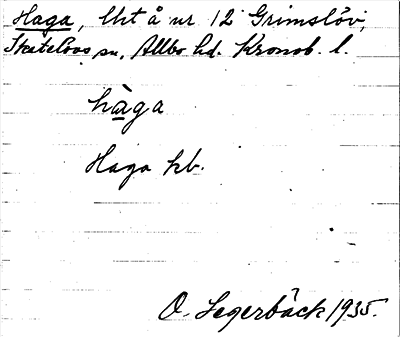 Haga, lht å nr 12 Grimslöv,
Skatelövs sn, Allbo hd. Kronob. l.
hàga
Haga kb.
O. Segerbäck 1935.